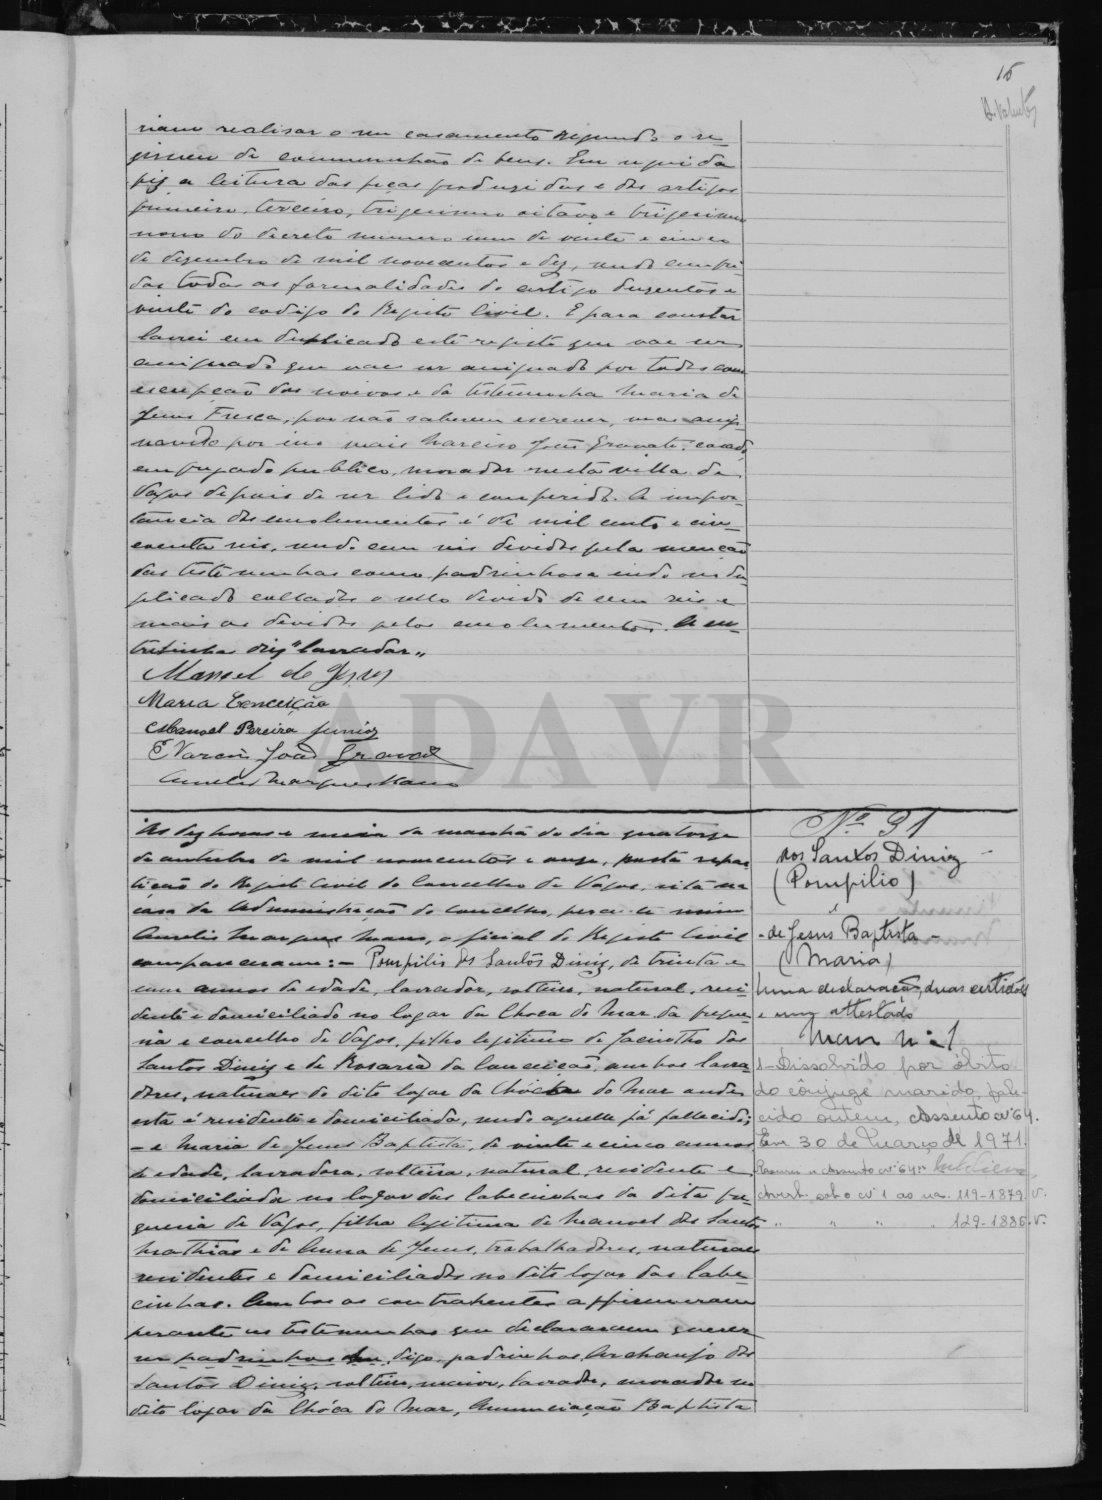 15
riam realisar o seu casamento segundo o re-
gimen de communhão de bens. Em seguida
fiz a leitura das peças produzidas e dos artigos
primeiro, terceiro, trigesimo oitavo e trigesimo
nono do decreto numero um de vinte e cinco
de dezembro de mil novecentos e dez, sendo cumpri-
das todas as formalidades do artigo duzentos e
vinte do codigo do Registo Civil. E para constar
lavrei em duplicado este registo que vae ser
assignado que vae ser assignado por todos com
excepção dos noivos e da testemunha Maria de
Jesus Fresca, por não saberem escrever, mas assi-
nando por isso mais Narciso João Gravato, casado,
empregado publico, morador nesta villa de
Vagos depois de ser lido e conferido. A impor-
tancia dos emolumentos é de mil cento e cin-
coenta reis, sendo cem reis devidos pela menção
das testemunhas como padrinhos e indo no du-
plicado collados o sello devido de cem reis e
mais os devidos pelos emolumentos. A en-
trelinha diz "lavrador"
Manoel de Jesus
Maria Conceição
Manoel Pereira Junior
Narciso João Gravato
Aurelio Marques Mano
ADAVR
Ás dez horas e meia da manhã do dia quatorze
de outubro de mil novecentos e onze, nesta repar-
tição do Registo Civil do Concelho de Vagos, sita na
casa da Administração do concelho, perante mim
Aurelio Marques Mano, oficial do Registo Civil
compareceram: – Pompilio dos Santos Diniz, de trinta e
um annos de edade, lavrador, solteiro, natural, resi-
dente e domiciliado no logar da Choca do Mar da fregue-
sia e concelho de Vagos, filho legitimo de Jacintho dos
Santos Diniz e de Rosaria da Conceição, ambos lavra-
dores, naturaes do dito logar da Chóca do Mar onde
esta é residente e domiciliada, sendo aquelle já fallecido;
– e Maria de Jesus Baptista, de vinte e cinco annos
de edade, lavradora, solteira, natural, residente e
domiciliada no logar das Labecinhas da dita fre-
guesia de Vagos, filha legitima de Manoel dos Santos
Mathias e de Anna de Jesus, trabalhadores, naturaes
residentes e domiciliados no dito logar das Labe-
cinhas. Ambos os contrahentes affirmaram
perante as testemunhas que declararam querer
ser padrinhos digo, padrinhos, Archanjo dos
Santos Diniz, solteiro, maior, lavrador, morador no
dito logar da Chóca do Mar, Annunciação Baptista
Nº 31
dos Santos Diniz
(Pompilio)
e
de Jesus Baptista
(Maria)
Uma declaração, duas certidões
e um attestado
Maço nº 1
1– Dissolvido por óbito
do cônjuge marido, fale-
cido ontem, Assento nº 64.
Em 30 de Março de 1971.
Averb. sob o nº 1 ao na. 119-1879. V.
" " " . 129-1886. V.